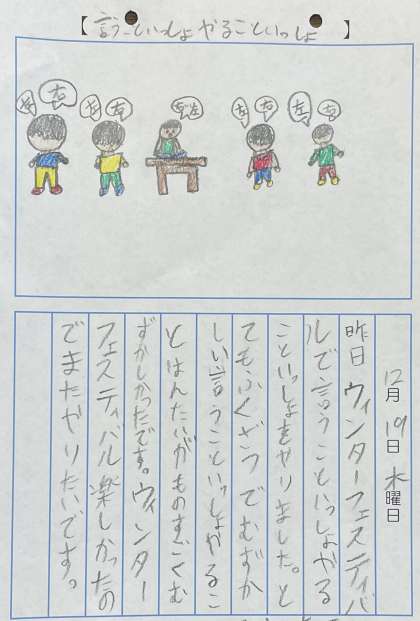 【言うこといっしょやることいっしょ】
右
左
左
左
左
右
左
右
12月19日木曜日
昨日ウィンターフェスティバ
ルで言うこといっしょやる
こといっしょをやりました。と
てもふくざつでむずか
しい言うこといっしょやるこ
とはんたいがものすごくむ
ずかしかったです。ウィンター
フェスティバル楽しかったの
でまたやりたいです。